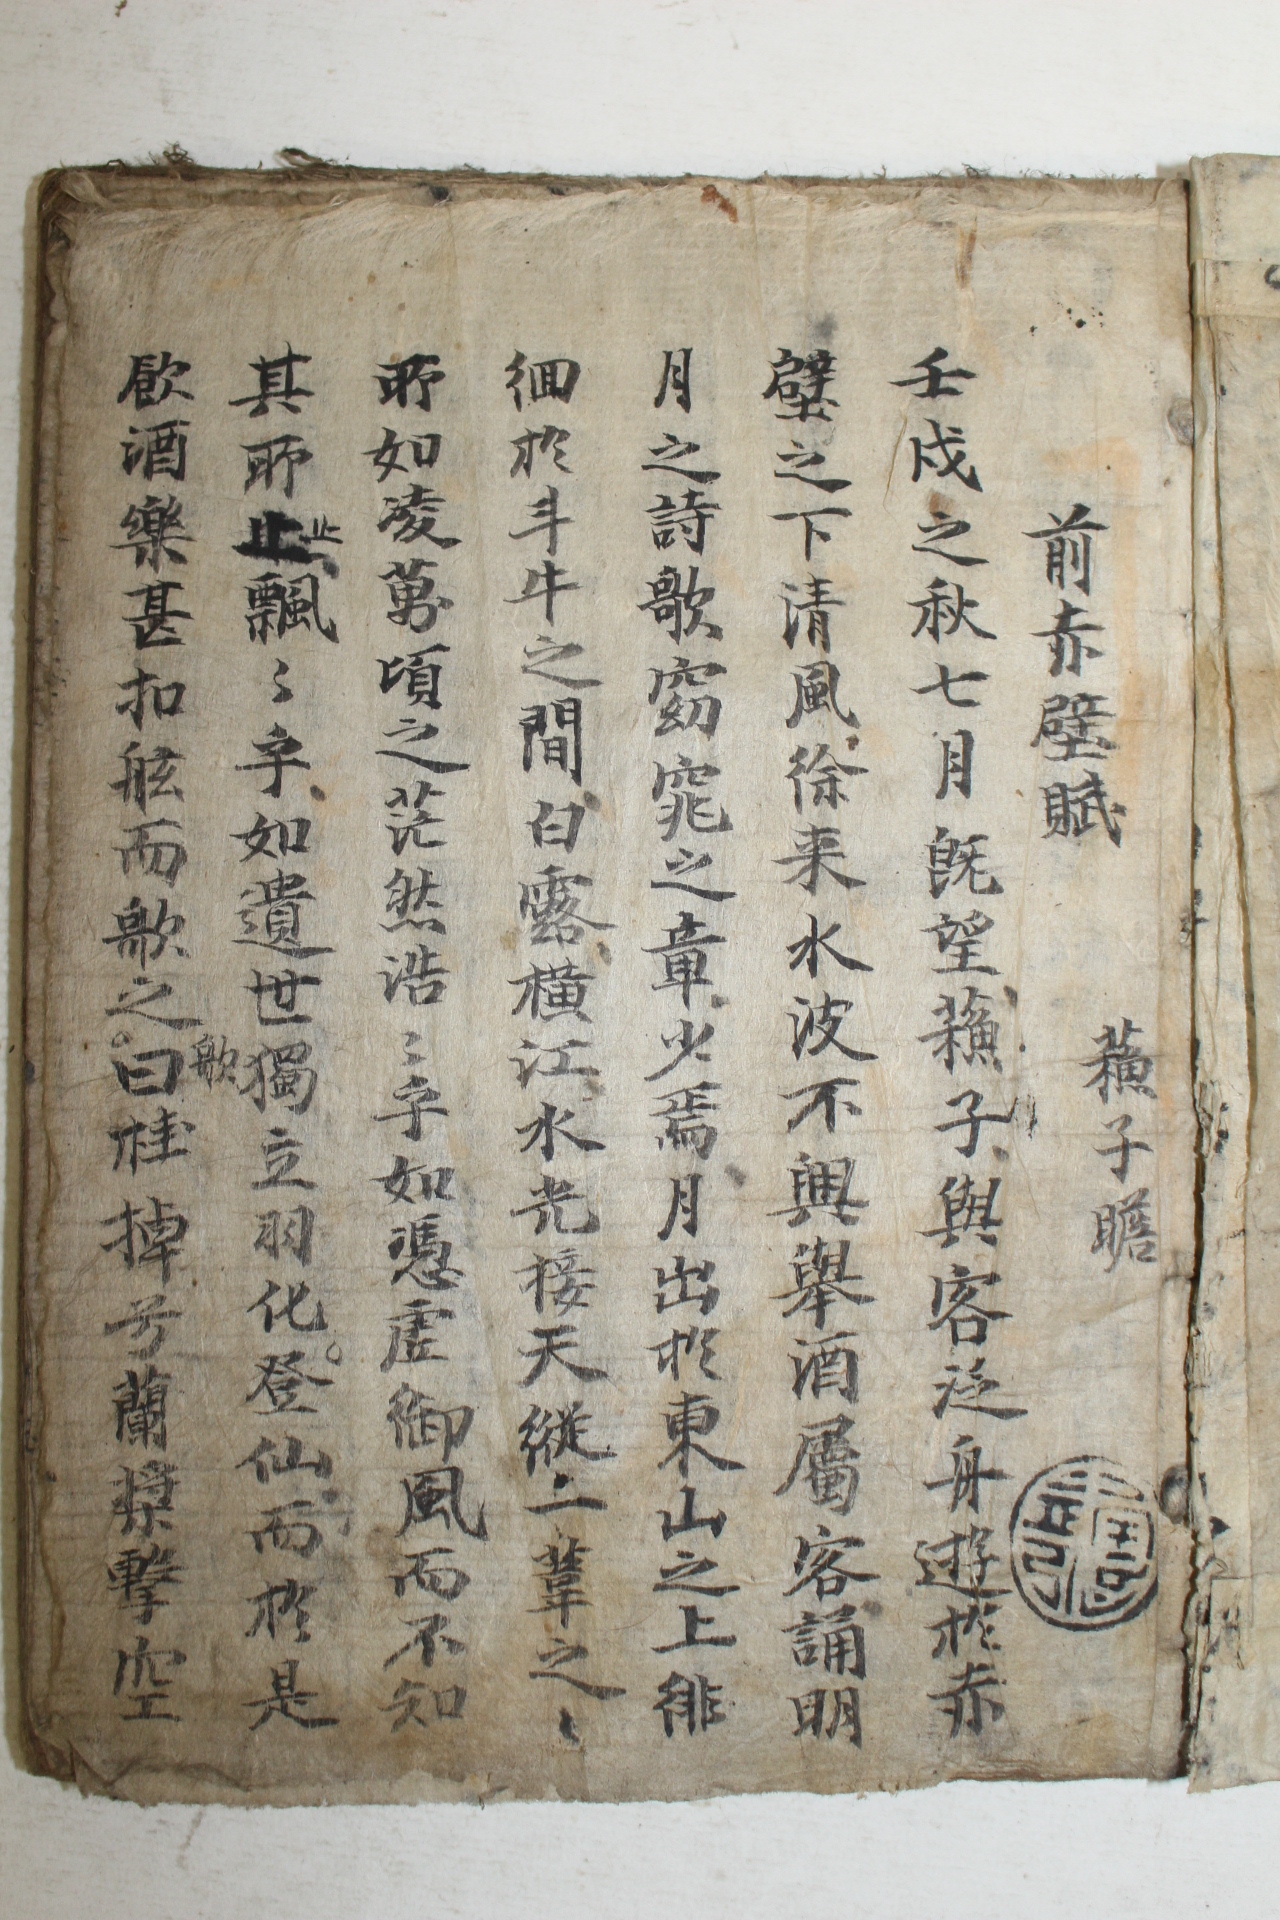 前赤壁賦
蘓子瞻
壬戌之秋七月既望蘓子與客泛舟遊扵赤
壁之下清風徐来水波不興舉酒屬客誦明
月之詩歌窈窕之章少焉月出扵東山之上徘
徊扵斗牛之間白露橫江水光接天縱一葦之
所如凌萬頃之茫然浩〻乎如憑虛御風而不知
其所止飄〻乎如遺世獨立羽化登仙而扵是
止
飲酒樂甚扣舷而歌之曰桂棹兮蘭槳擊空
歌